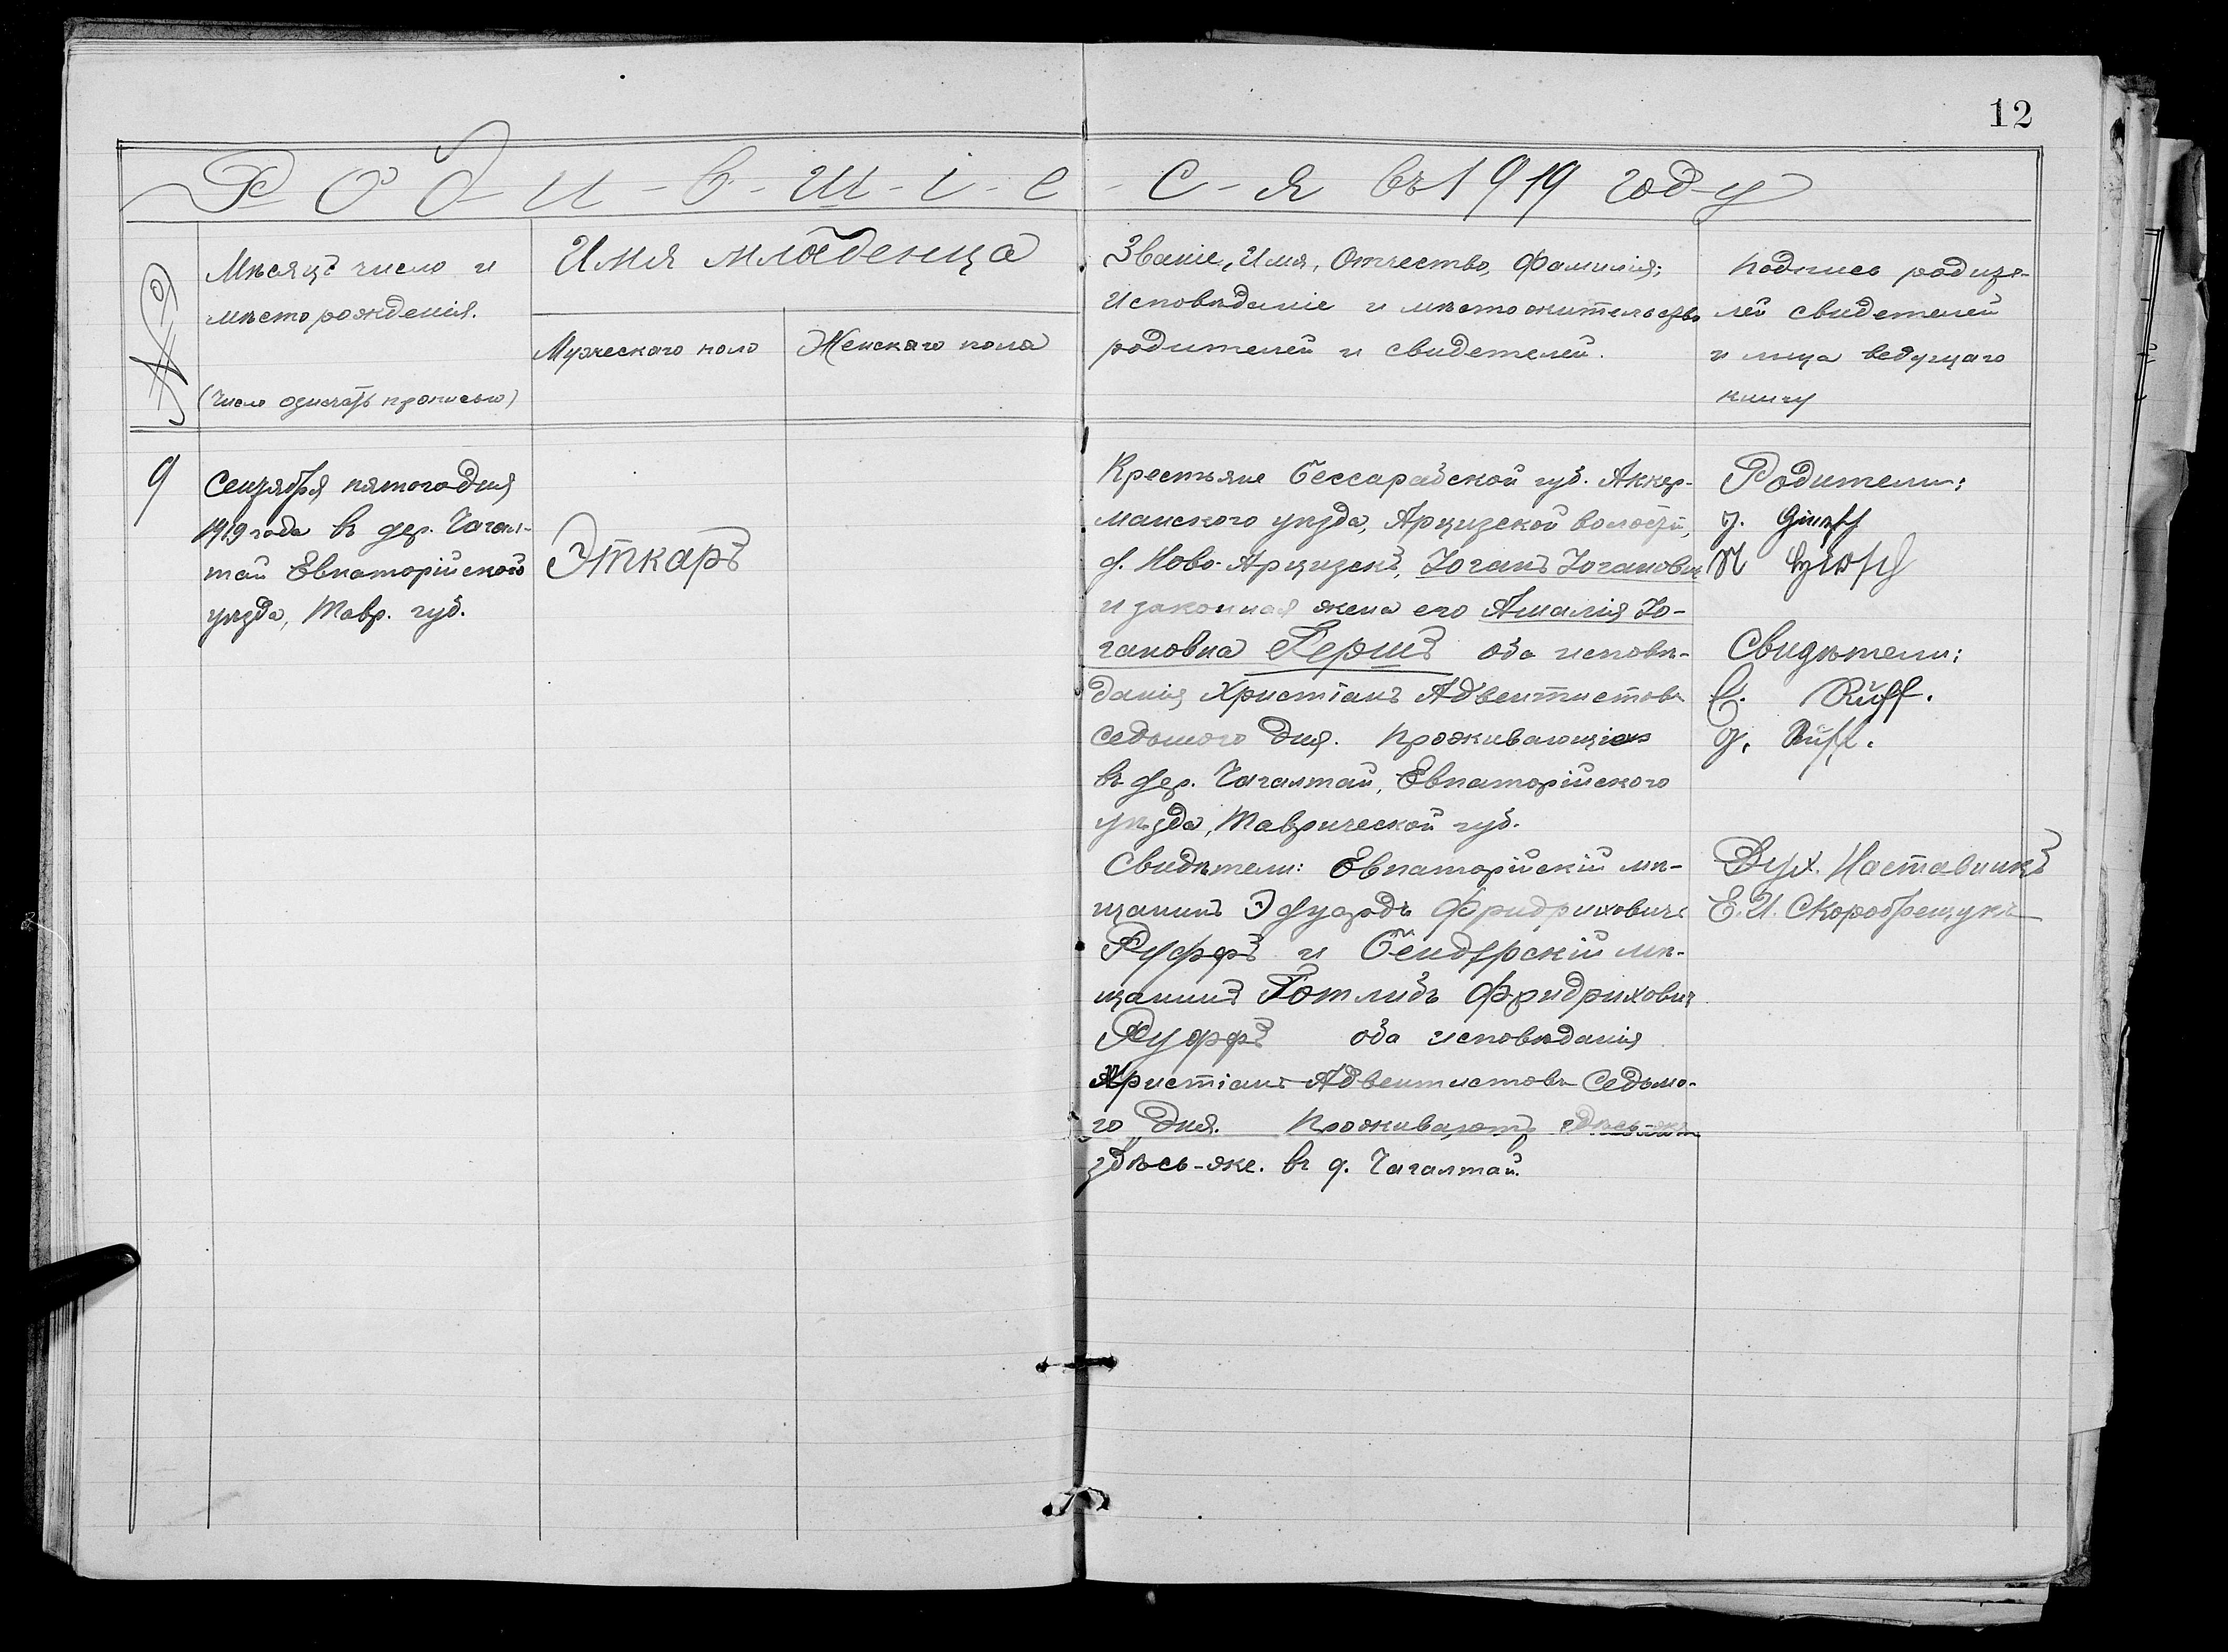 12
Р-о-д-и-в-ш-і-е-с-я въ 1919 году
№№
Мѣсяцъ число и
мѣсто рожденія.
(Число означать прописью)
Имя младенца
Мужеского пола
Женскаго пола
Званіе, Имя, Отчество, Фамилія;
Исповѣданіе и мѣстожительство
родителей и свидетелей.
Подпись родите-
лей свидетелей
и лица ведущаго
книгу
9
Сентября пятого дня
1919 года въ дер. Чагал-
тай Евпаторійского
уѣзда, Тавр. губ.
Эткаръ
Крестьяне Бессарабской губ. Аккер-
манского уѣзда, Арцизской волости,
д. Ново-Арцизскъ, Іоганъ Іоганович
и законная жена его Амалія Іо-
гановна Гершъ оба исповѣ-
данія Христіанъ Адвентистовъ
Седьмого Дня. Проживающіе
въ дер. Чагалтай, Евпаторійского
уѣзда, Таврической губ.
Свидѣтели: Евпаторійскій мѣ-
щанинъ Эдуардъ Фридриховичъ
Руффъ и Бендерскій мѣ-
щанинъ Готлибъ Фридрихович
Руффъ оба исповѣданія
Христіанъ Адвентистовъ Седьмо-
го Дня. Проживаютъ здѣсь-же
здѣсь-же. въ д. Чагалтай.
Родители:
J.
Свидѣтели:
E. Ruff.
G. Ruff.
Дух. Наставникъ
Е. И. Скоробрещукъ